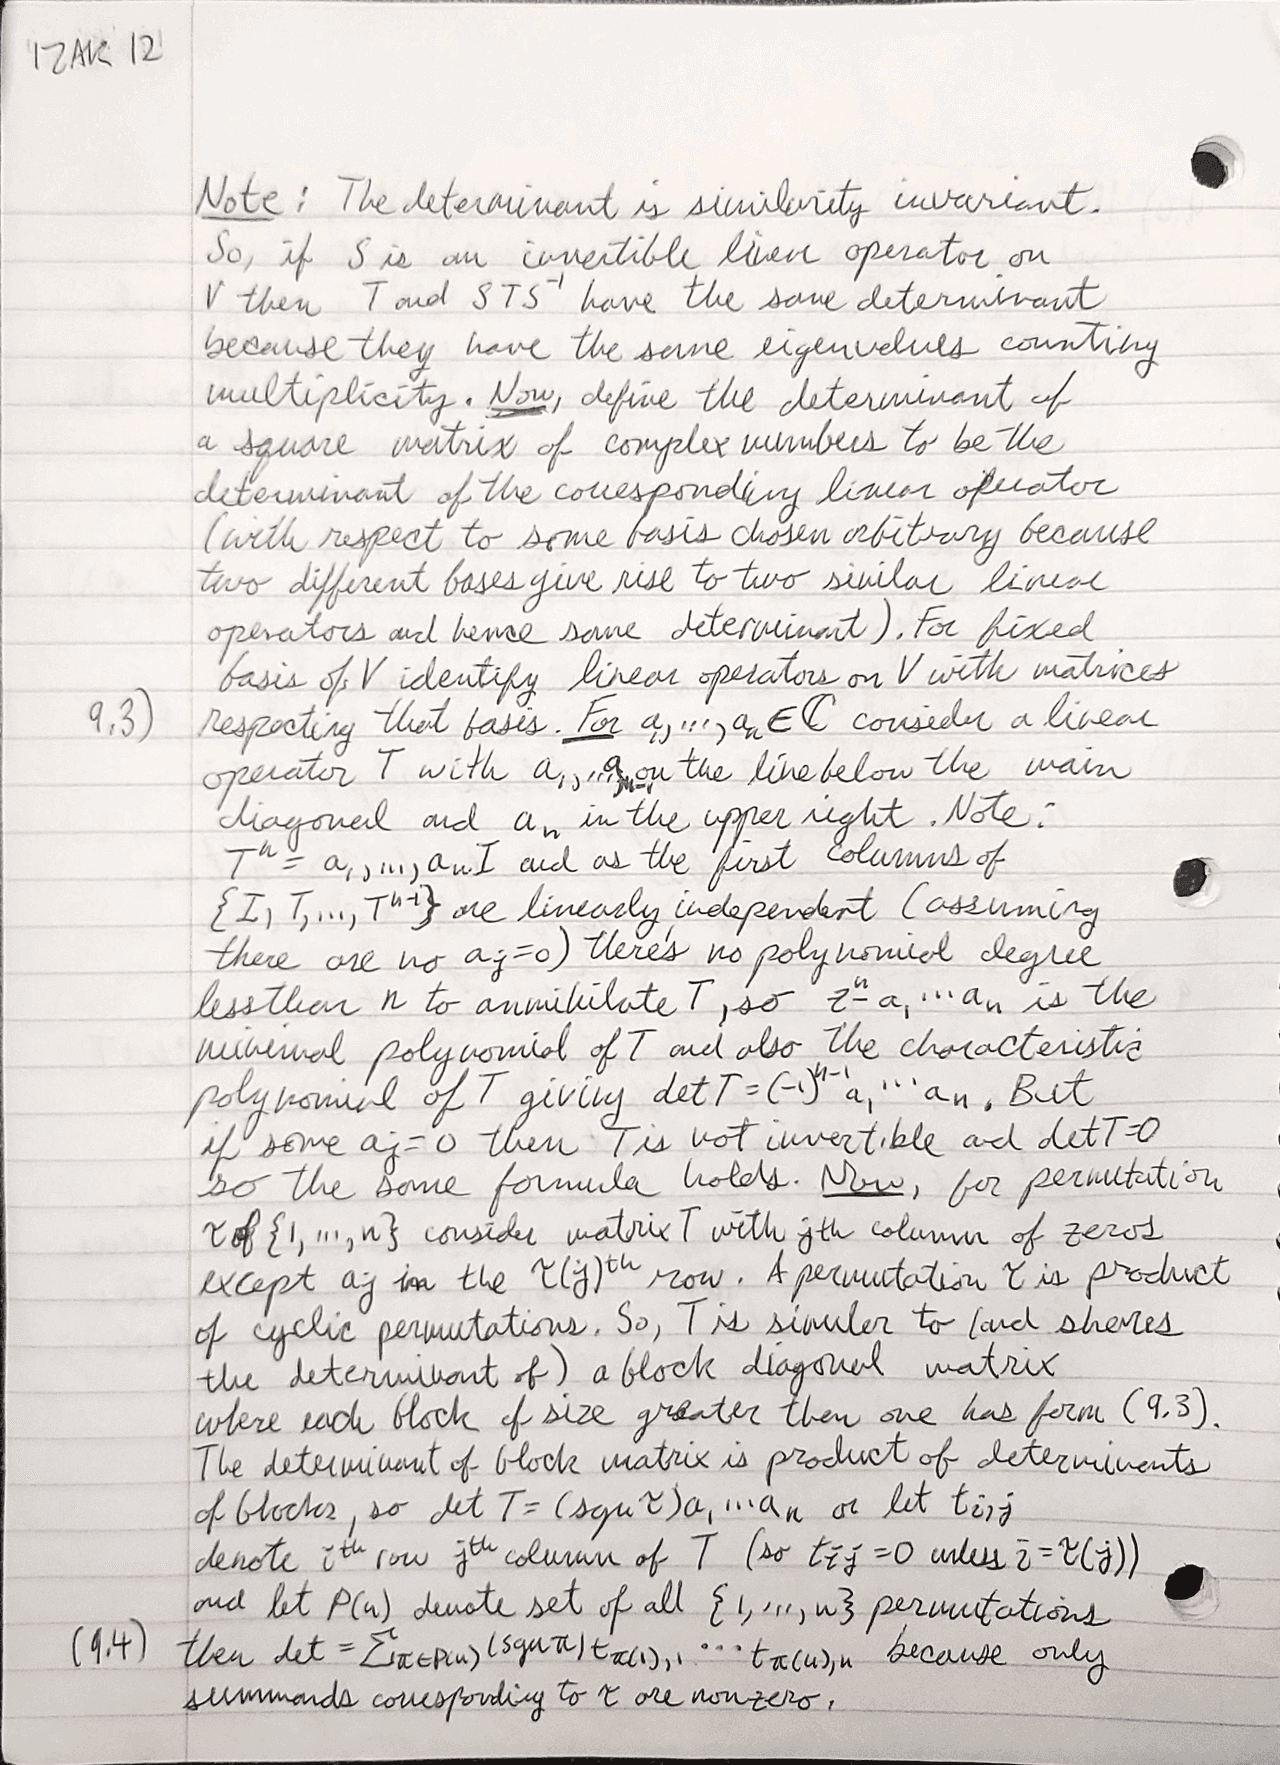 IZAK 12
Note: The determinant is similarity invariant.
So, if S is an invertible linear operator on
V then T and STS⁻¹ have the same determinant
because they have the same eigenvalues counting
multiplicity. Now, define the determinant of
a square matrix of complex numbers to be the
determinant of the corresponding linear operator
(with respect to some basis chosen arbitrary because
two different bases give rise to two similar linear
operators and hence same determinant). For fixed
basis of V identify linear operators on V with matrices
9.3) respecting that basis. For a₁, ..., aₙ ∈ ℂ consider a linear
operator T with a₁, ..., aₙ₋₁ on the line below the main
diagonal and aₙ in the upper right. Note:
Tⁿ = a₁, ..., aₙI and as the first columns of
{I, T, ..., Tⁿ⁻¹} are linearly independent (assuming
there are no aⱼ=0) there's no polynomial degree
less than n to annihilate T, so zⁿ - a₁ ... aₙ is the
minimal polynomial of T and also the characteristic
polynomial of T giving det T = (-1)ⁿ⁻¹ a₁ ... aₙ. But
if some aⱼ=0 then T is not invertible and det T=0
so the same formula holds. Now, for permutation
τ of {1, ..., n} consider matrix T with jth column of zeros
except aⱼ in the τ(j)ᵗʰ row. A permutation τ is product
of cyclic permutations. So, T is similar to (and shares
the determinant of) a block diagonal matrix
where each block of size greater than one has form (9.3).
The determinant of block matrix is product of determinants
of blocks, so det T = (sgn τ) a₁ ... aₙ or let tᵢ,ⱼ
denote iᵗʰ row jᵗʰ column of T (so tᵢ,ⱼ = 0 unless i = τ(j))
and let P(n) denote set of all {1, ..., n} permutations
(9.4) then det = Σπ∈P(n) (sgn π) tπ(1),1 ... tπ(n),n because only
summands corresponding to τ are nonzero.